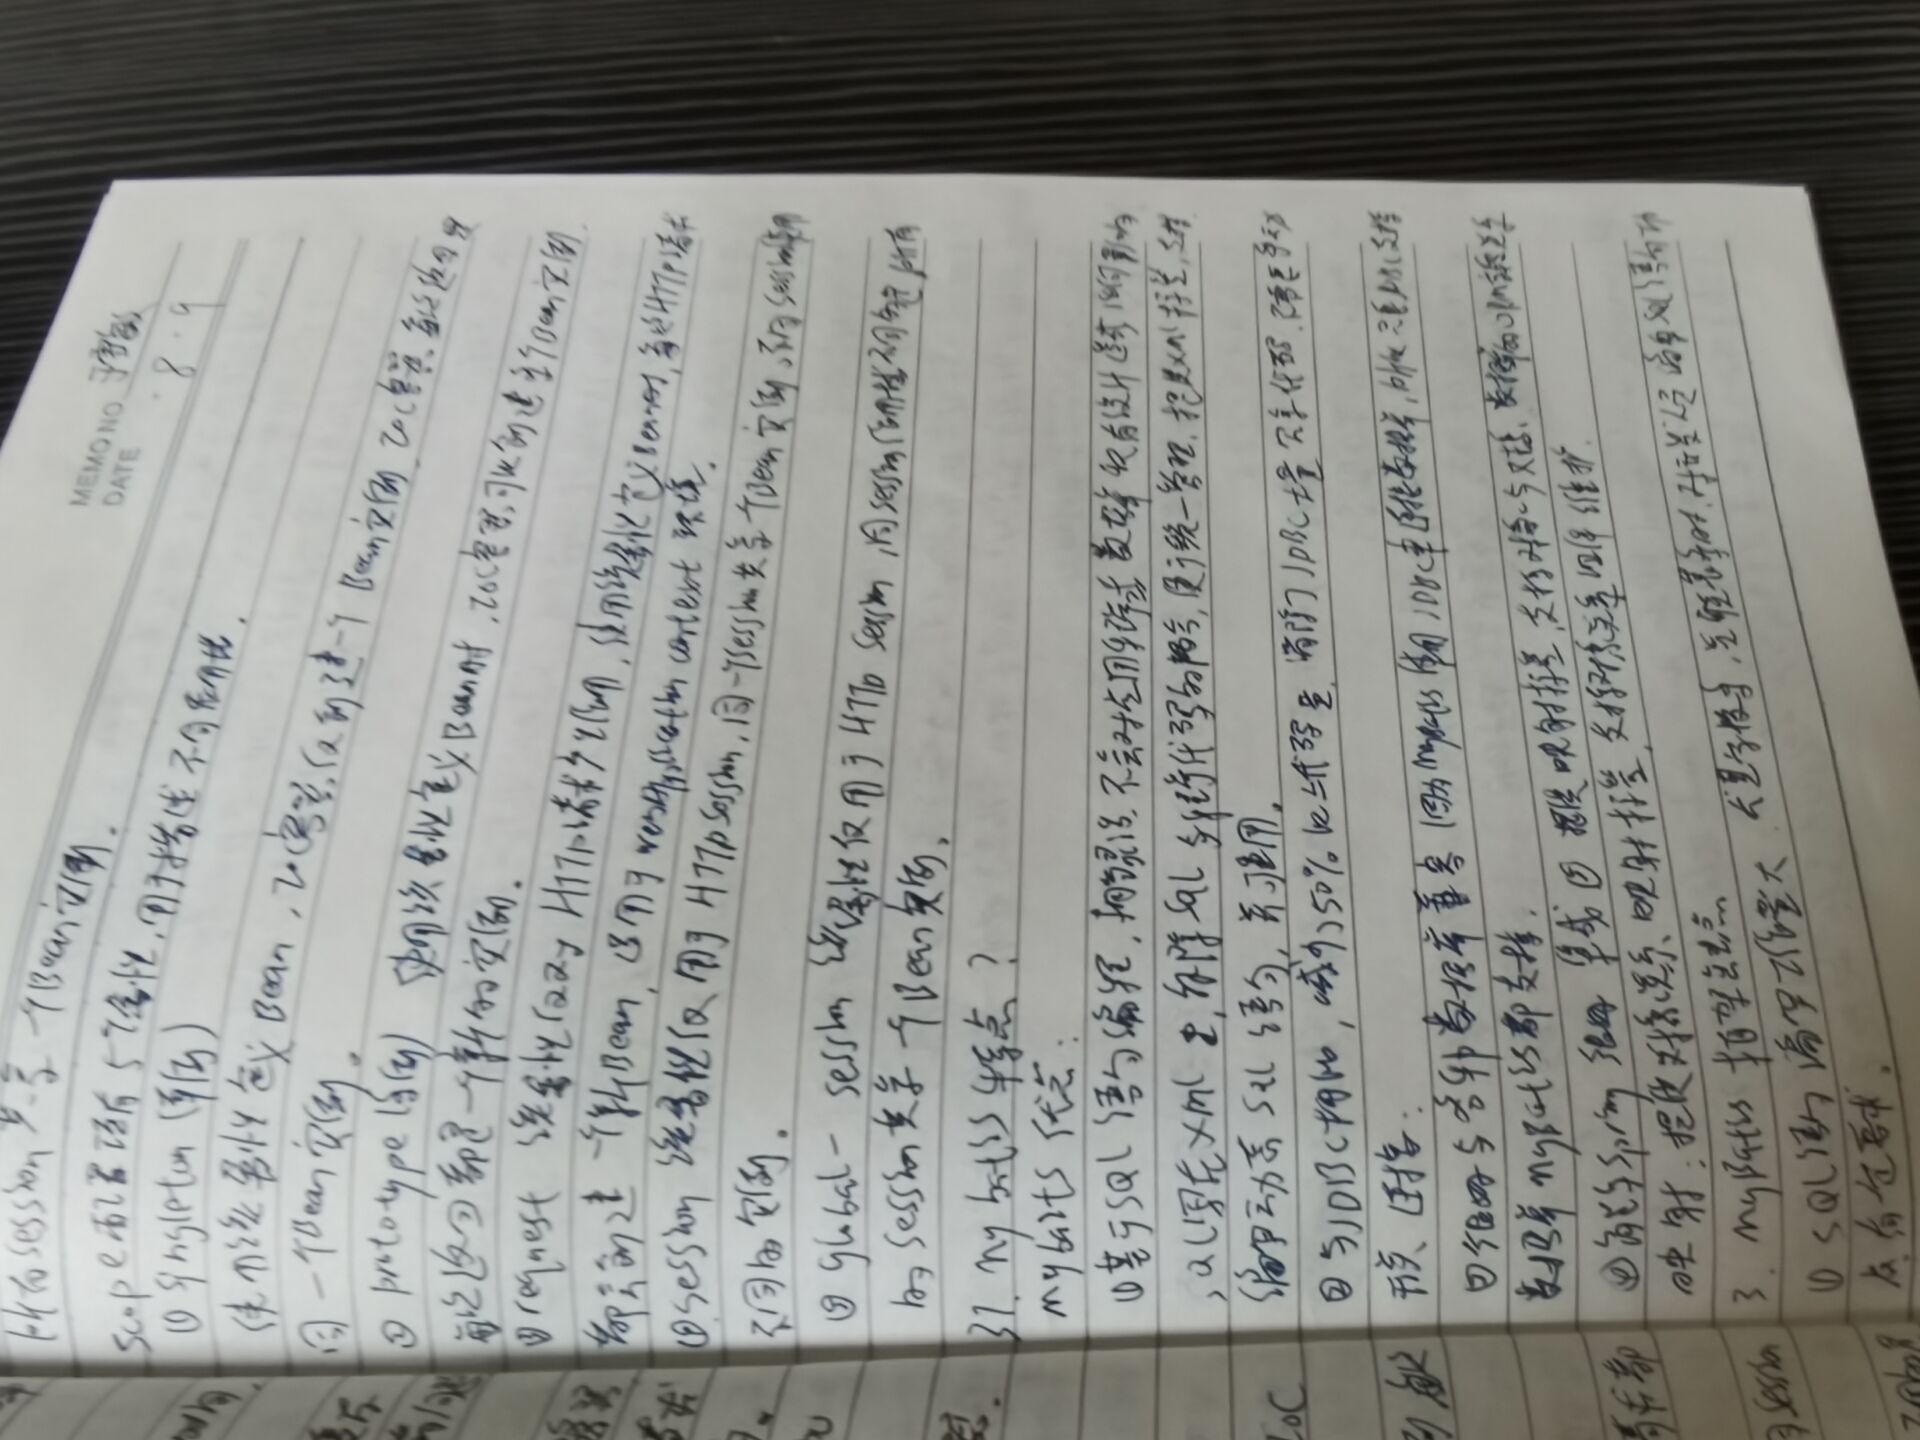 MEMO NO.
DATE 8.9
所有session共享一个Bean实例.
scope配置项有5个属性,用于描述不同的作用域.
① singleton (单例)
使用该属性定义Bean,IOC容器仅创建一个Bean实例,IOC容器每次返回的
同一个Bean实例.
② prototype (原型) 使用该属性定义Bean时,IOC容器可以创建多个Bean实例
每次返回都是一个新的实例.
③ request 该属性仅对HTTP请求产生作用,使用该属性定义Bean时,每次HTTP请求
都会创建一个新Bean,适用于 context 环境.
④ session 该属性仅用于HTTP session,同一个session共享一个Bean实例,不同session使用
不同的实例.
⑤ global-session 该属性仅用于HTTP session,同session作用域不同的是,所有
的session共享一个Bean实例.
37. mybatis 优缺点?
mybaits 优点:
①基于SQL语句编程,相当灵活,不会对应用程序或数据库现有设计造成影响
,SQL写在xml里,解除sql与程序代码的耦合,便于统一管理,提供xml标签,支持
编写动态sql语句,并可重用.
②与JDBC相比,减少了50%以上代码量,消除了JDBC大量冗余代码,不需要手动
开关连接.
③很好的与各种数据库兼容 因为mybatis使用JDBC来连接数据库,所以只要JDBC支持
数据库 mybatis都支持.
④能与spring 很好 集成 ⑤ 提供映射标签,支持对象与数据库的ORM字段关系
映射:提供对象关系映射标签,支持对象关系组件维护.
3. MyBatis 框架缺点
①SQL语句编写工作量大 尤其字段多,关联表多时,对开发人员编写SQL语句功
底有一定要求.